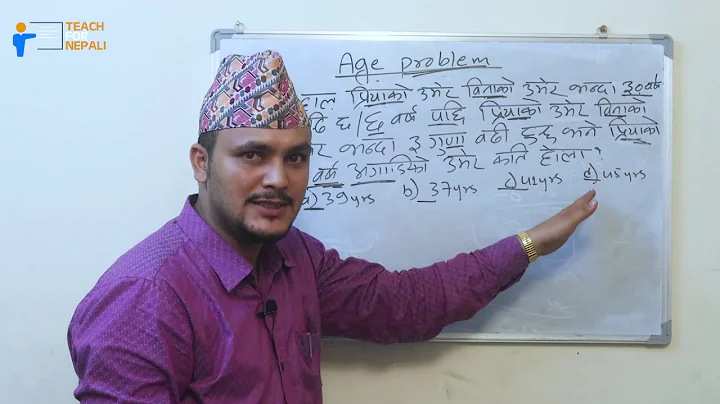 TEACH
FOR
NEPALI
Age problem
हाल प्रियाको उमेर विनाको उमेर भन्दा ३० वर्ष
बढि छ / ६ वर्ष पछि प्रियाको उमेर विनाको
भन्दा ३ गुणा बढी हुन्छ भने प्रियाको
वर्ष अगाडिको उमेर कति होला?
a) 39yrs b) 37yrs c) 42yrs d) 45yrs